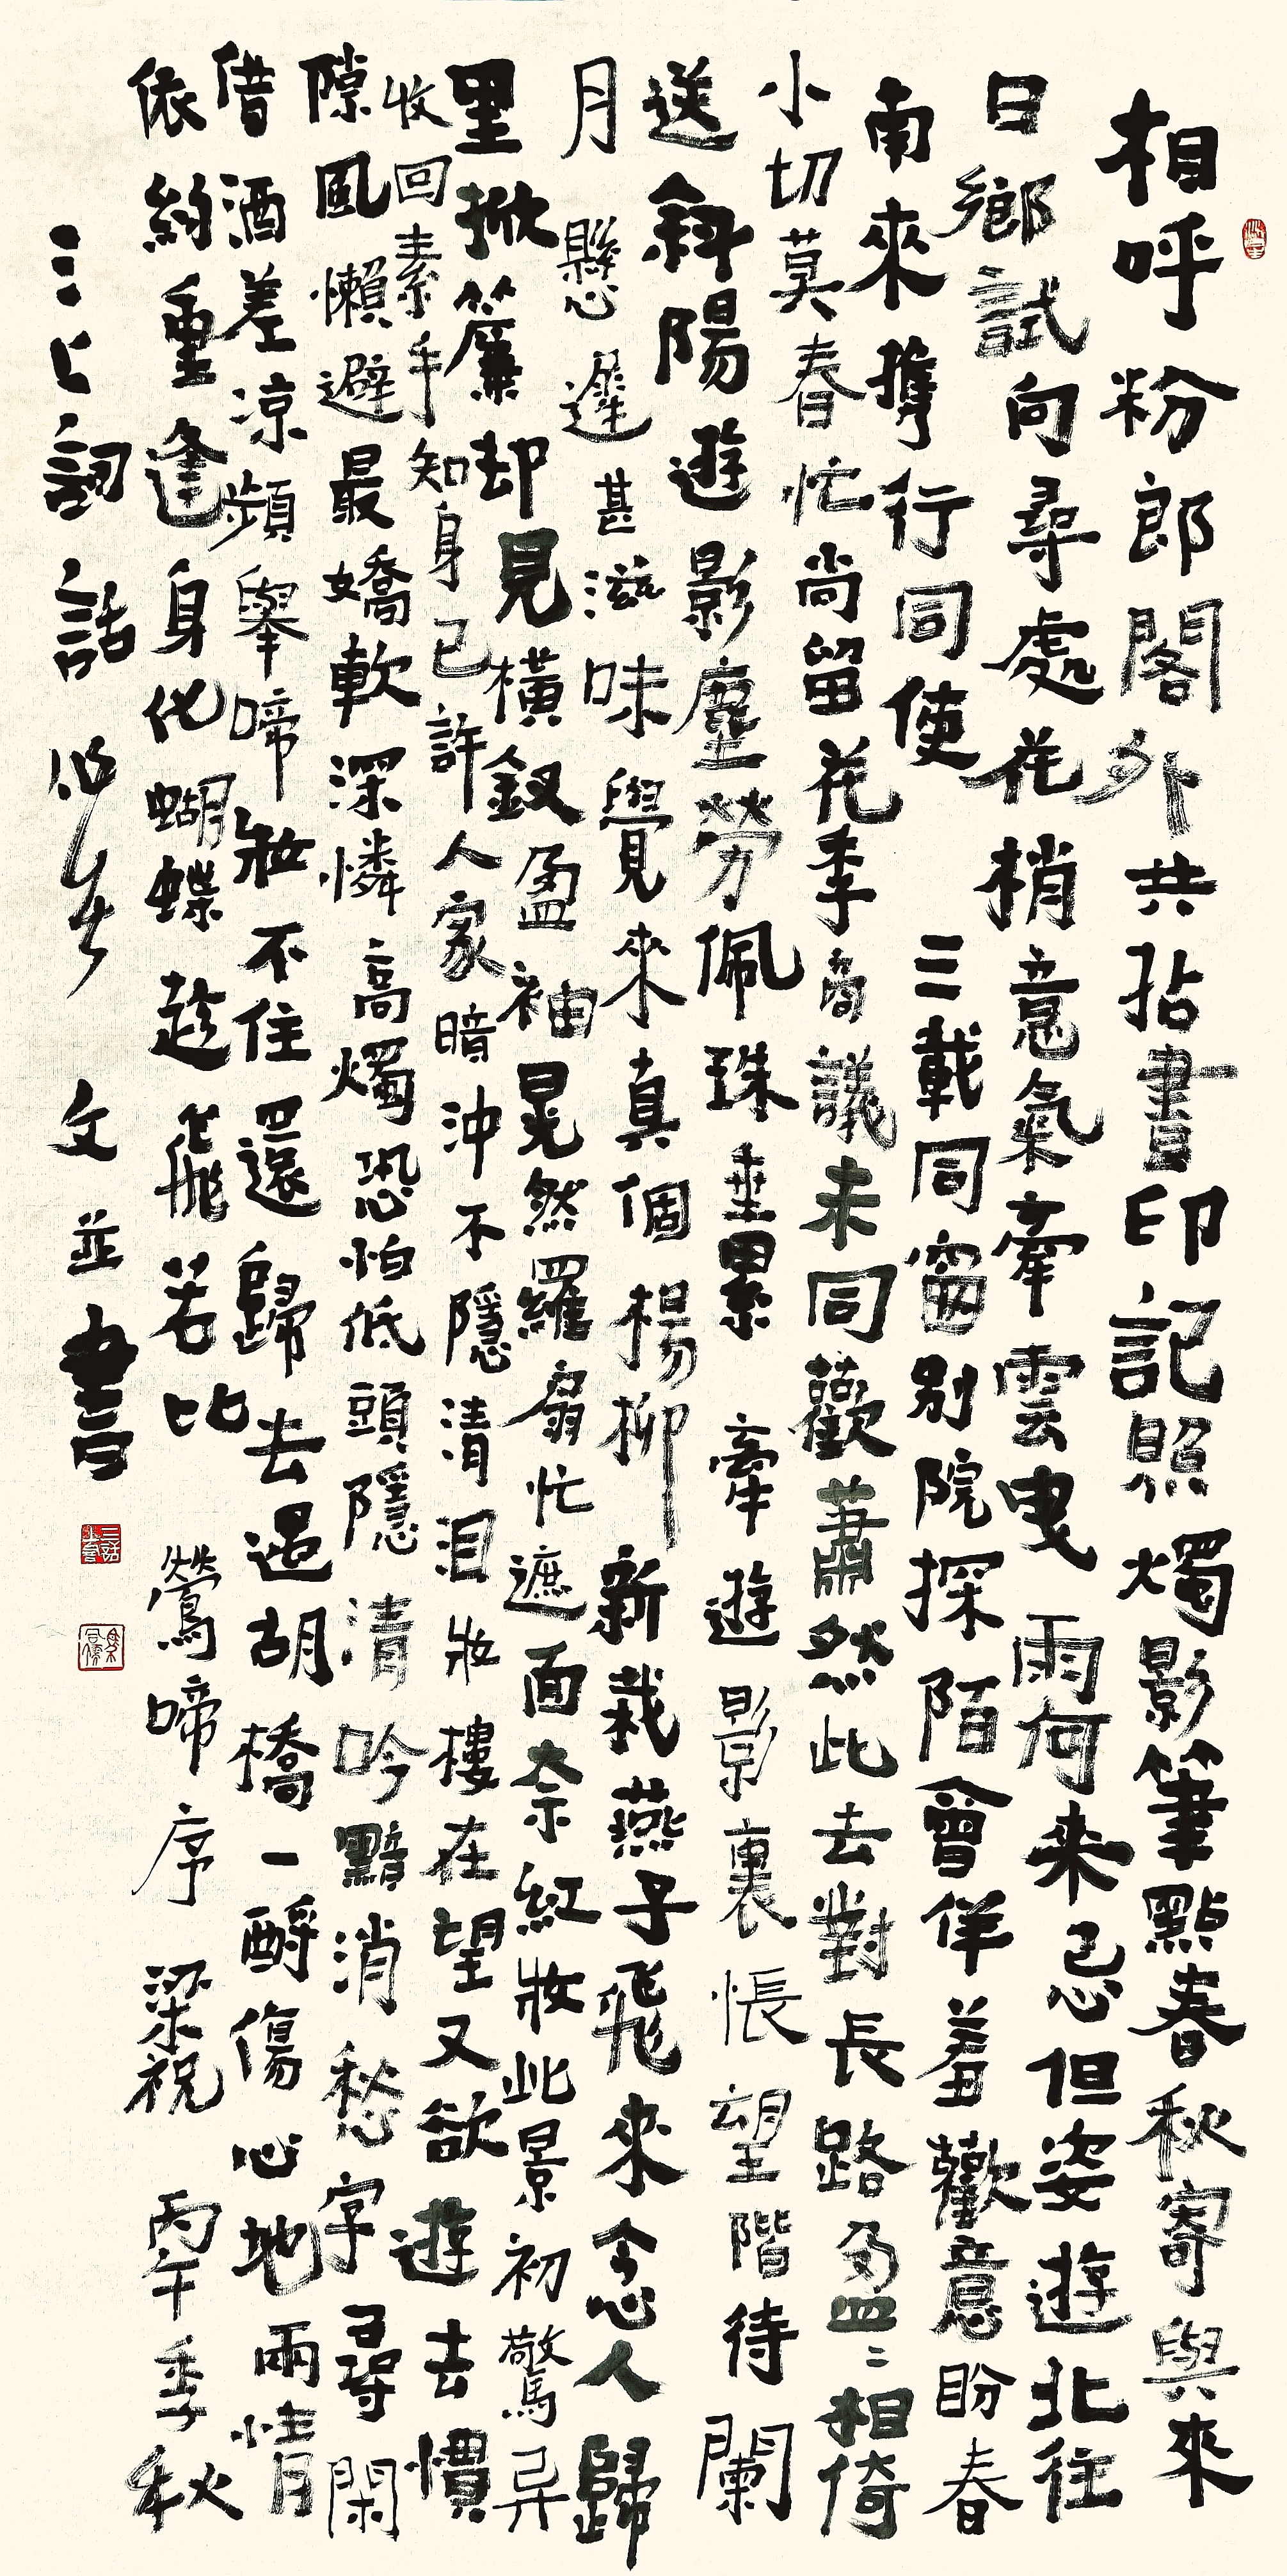 相呼粉郎閣外共拈書印記照燭影筆點春秋寄與來
日鄉試向尋處花梢意氣牽雲曳雨何来忌但姿遊北往
南來攜行同使三載同窗別院探陌會佯羞歡意盼春
小切莫春忙尚留花季商議未同歡蕭然此去對長路盈〻相倚
送斜陽遊影塵勞佩珠垂累牽遊影裏悵望階待闌
月懸遲甚滋味覺來真個楊柳新栽燕子飛來念人歸
里掀簾却見橫釵盈袖晃然羅扇忙遮面奈紅妝此景初驚异
收回素手知身已許人家暗沖不隱清泪妝樓在望又欲遊去慣
隙風懶避最嬌軟深憐高燭恐怕低頭隱清吟黯消愁字尋閑
借酒差涼頻舉啼妝不住還歸去過胡橋一酹傷心地兩情
依約重逢身化蝴蝶趁飛若比鶯啼序梁祝丙午季秋
三上詞話文並書